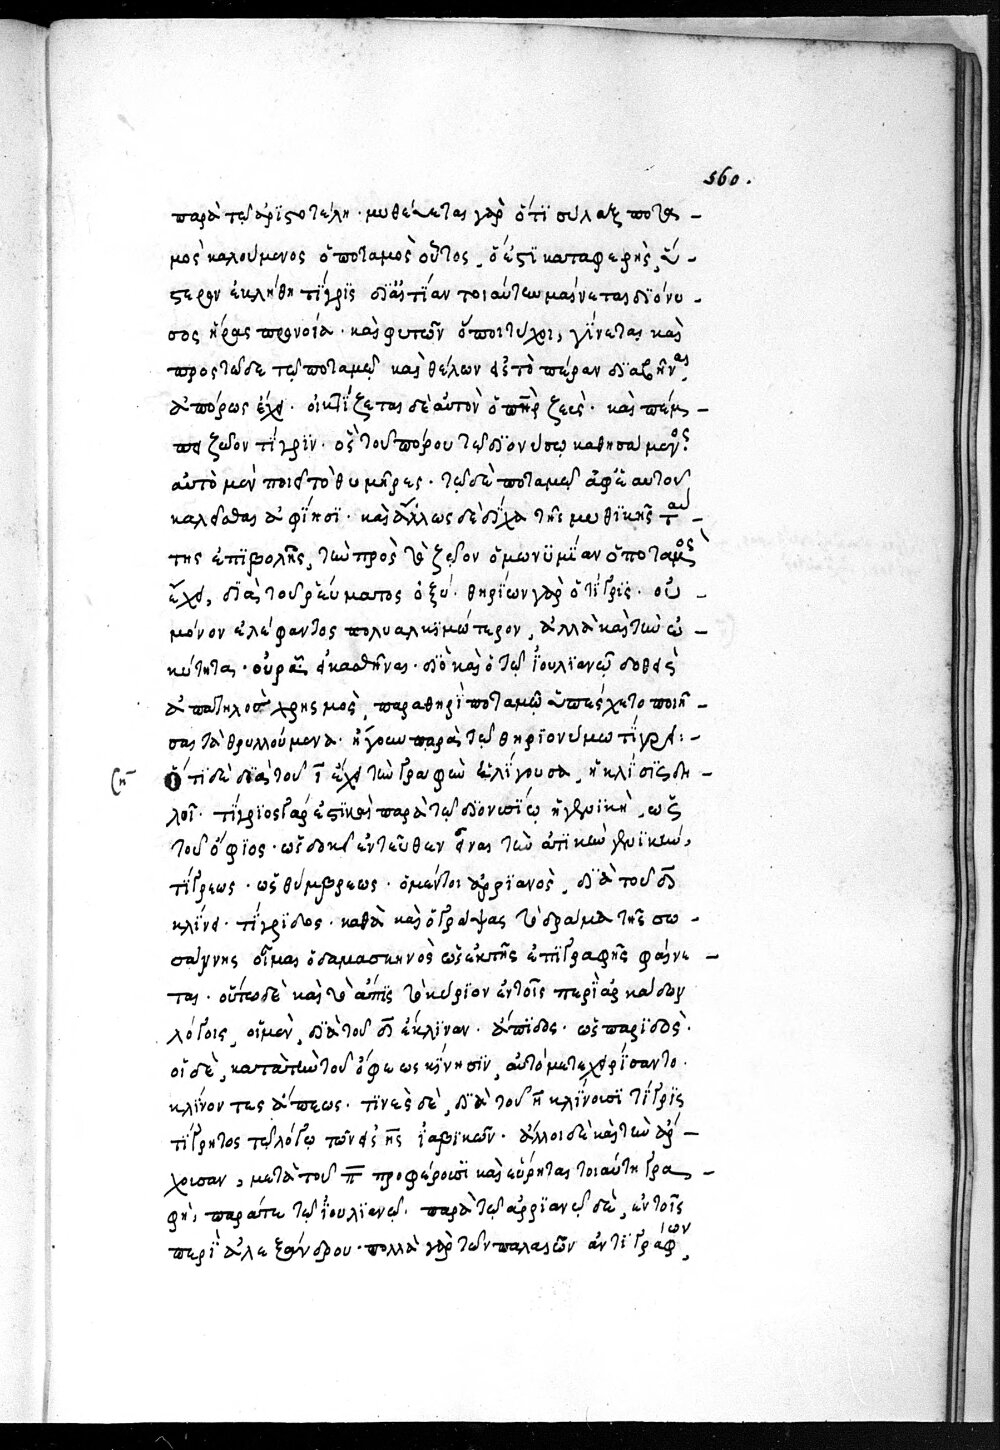 560.
παρὰ τῷ ἀριστοτέλη · μυθεύεται γὰρ ὅτι σύλαξ ποτα –
μὸς καλούμενος ὁ ποταμὸς οὗτος, ὅ ἐστι καταφερὴς, ὕ –
στερον ἐκλήθη τίγρις δι' αἰτίαν τοιαύτην μαίνεται διόνυ –
σος ἥρας προνοία · καὶ φυγὼν ὅποι τύχοι, γίνεται καὶ
πρὸς τῷδε τῷ ποταμῷ καὶ θέλων εἰς τὸ πέραν διαβῆναι,
ἀπόρως ἔχει · οἰκτίζεται δὲ αὐτὸν ὁ πὴρ ζεὺς · καὶ πέμ –
πει ζῶον τίγριν · ὃς τοῦ πόρου τῷ διονύσω καθησάμενος
αὐτὸ μὲν ποιεῖ τὸ θυμῆρες · τῷ δὲ ποταμῷ ἀφ' ἑαυτοῦ
καλεῖσθαι ἀφίησι · καὶ ἄλλως δὲ δίχα τῆς μυθικῆς ταύ –
της ἐπιβολῆς, τὴν πρὸς τὸ ζῶον ὁμωνυμίαν ὁ ποταμὸς
ἔχει, διὰ τοῦ ῥεύματος ὀξύ · θηρίων γὰρ ὁ τίγρις · οὐ –
μόνον ἐλέφαντος πολυαλκιμώτερον, ἀλλὰ καὶ τὴν ὠ –
κύτητα · οὐρᾶς εἰκασθῆναι · διὸ καὶ ὁ τῷ ἰουλιανῷ δοθεὶς
ἀπατηλὸς χρησμὸς, παρὰ θηρὶ ποταμῷ ὑπέσχετο ποιῆ –
σαι τὰ θρυλλούμενα · ἤγουν παρὰ τῷ θηριονύμω τίγρει :
Ὅτι δὲ διὰ τοῦ ῑ ἔχει τὴν γραφὴν ἐλήγουσα, ἡ κλίσις δη –
λοῖ · τίγριος γάρ ἐστι καὶ παρὰ τῷ διονυσίω ἡ γενικὴ, ὡς
τοῦ ὄφιος · ὡς δοκεῖν ἐντεῦθεν εἶναι τὴν ἀττικὴν γενικὴν,
τίγρεως · ὡς θύμβρεως · ὁ μέντοι ἀρριανὸς, διὰ τοῦ δ̄
κλίνει · τίγριδος · καθὰ καὶ ὁ γράψας τὸ δράμα τῆς σω –
σάννης οἶμαι ὁ δαμασκηνὸς ὡς ἐκ τῆς ἐπιγραφῆς φαίνε –
ται · οὕτω δὲ καὶ τὸ ἄπις τὸ κύριον ἐν τοῖς περὶ ἀρκαδων
λόγοις, οἱ μὲν, διὰ τοῦ δ̄ ἔκλιναν · ἄπιδος · ὡς παρίδος ·
οἱ δὲ, κατὰ τὴν τοῦ ὄφεως κίνησιν, αὐτὸ μετεχειρίσαντο ·
κλίνοντες ἄπεως · τινὲς δὲ, διὰ τοῦ η̄ κλίνουσι τίγρις
τίγρητος τῷ λόγω τῶν εἰς ης ἰαμβικῶν · ἄλλοι δὲ καὶ τὴν ἄρ –
χουσαν, μετὰ τοῦ π̄ προφέρουσι καὶ εὕρηται τοιαύτη γρα –
φὴ, παρά τε τῷ ἰουλιανῷ · παρὰ τῷ ἀρριανῷ δὲ, ἐν τοῖς
περὶ ἀλεξάνδρου · πολλὰ γὰρ τῶν παλαιῶν ἀντιγράφων,